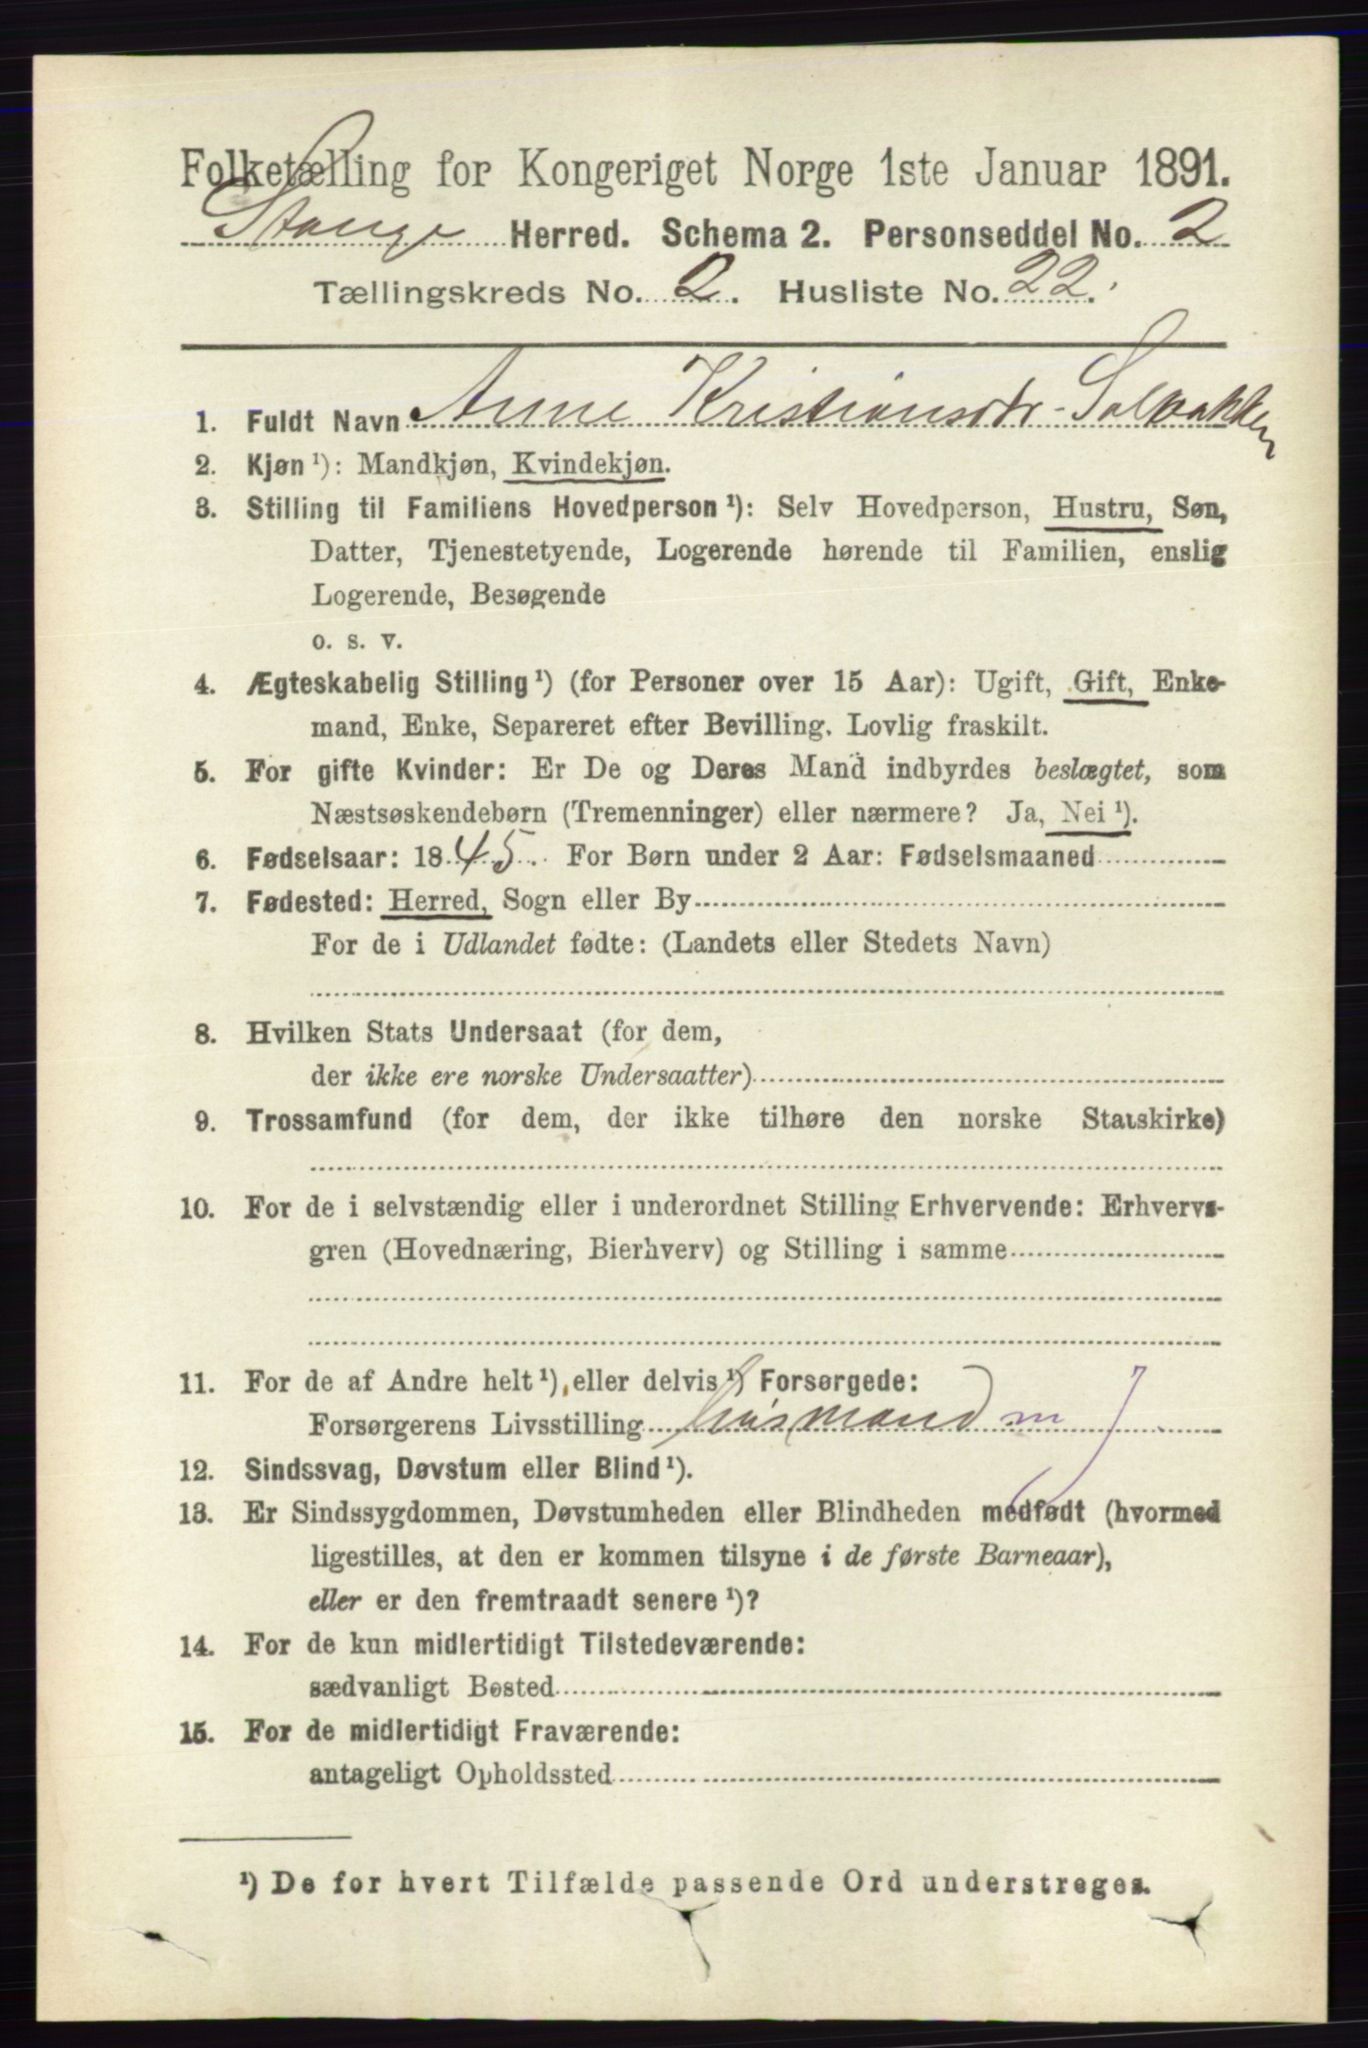 Folketælling for Kongeriget Norge 1ste Januar 1891.
Stange Herred. Schema 2. Personseddel No. 2
Tællingskreds No. 2. Husliste No. 22.
1. Fuldt Navn Anne Kristiansdtr. Solbakken
2. Kjøn ¹): Mandkjøn, Kvindekjøn.
3. Stilling til Familiens Hovedperson ¹): Selv Hovedperson, Hustru, Søn,
Datter, Tjenestetyende, Logerende hørende til Familien, enslig
Logerende, Besøgende
o. s. v.
4. Ægteskabelig Stilling ¹) (for Personer over 15 Aar): Ugift, Gift, Enke-
mand, Enke, Separeret efter Bevilling. Lovlig fraskilt.
5. For gifte Kvinder: Er De og Deres Mand indbyrdes beslægtet, som
Næstsøskendebørn (Tremenninger) eller nærmere? Ja, Nei ¹).
6. Fødselsaar: 1845. For Børn under 2 Aar: Fødselsmaaned
7. Fødested: Herred, Sogn eller By
For de i Udlandet fødte: (Landets eller Stedets Navn)
8. Hvilken Stats Undersaat (for dem,
der ikke ere norske Undersaatter)
9. Trossamfund (for dem, der ikke tilhøre den norske Statskirke)
10. For de i selvstændig eller i underordnet Stilling Erhvervende: Erhvervs-
gren (Hovednæring, Bierhverv) og Stilling i samme
11. For de af Andre helt ¹), eller delvis ¹) Forsørgede:
Forsørgerens Livsstilling Husmand m J
12. Sindssvag, Døvstum eller Blind ¹).
13. Er Sindssygdommen, Døvstumheden eller Blindheden medfødt (hvormed
ligestilles, at den er kommen tilsyne i de første Barneaar),
eller er den fremtraadt senere ¹)?
14. For de kun midlertidigt Tilstedeværende:
sædvanligt Bosted
15. For de midlertidigt Fraværende:
antageligt Opholdssted
¹) De for hvert Tilfælde passende Ord understreges.